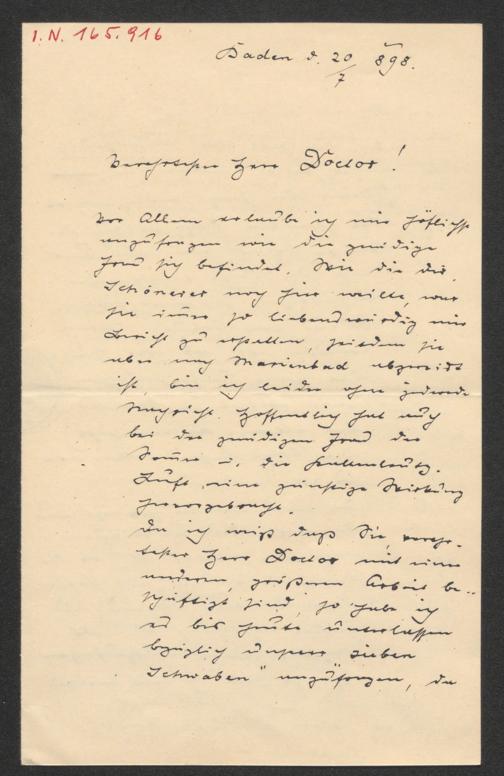 I.N. 165.916
Baden d. 20/7 898.
Verehrtester Herr Doctor!
Vor Allem erlaube ich mir höflichst
anzufragen wie die gnädige
Frau sich befindet. Wie die Dir.
Schönerer noch hier weilte, war
sie immer so liebenswürdig mir
Bericht zu erstatten, seitdem sie
aber nach Marienbad abgereist
ist, bin ich leider ohne jedwede
Nachricht. Hoffentlich hat auch
bei der gnädigen Frau die
Sonne u. die
Luft, eine günstige Wirkung
hervorgebracht.
Da ich weiß daß Sie, verehr-
tester Herr Doctor mit einer
anderen, größeren Arbeit be-
schäftigt sind, so habe ich
es bis heute unterlassen
bezüglich unserer „sieben
Schwaben" anzufragen, da